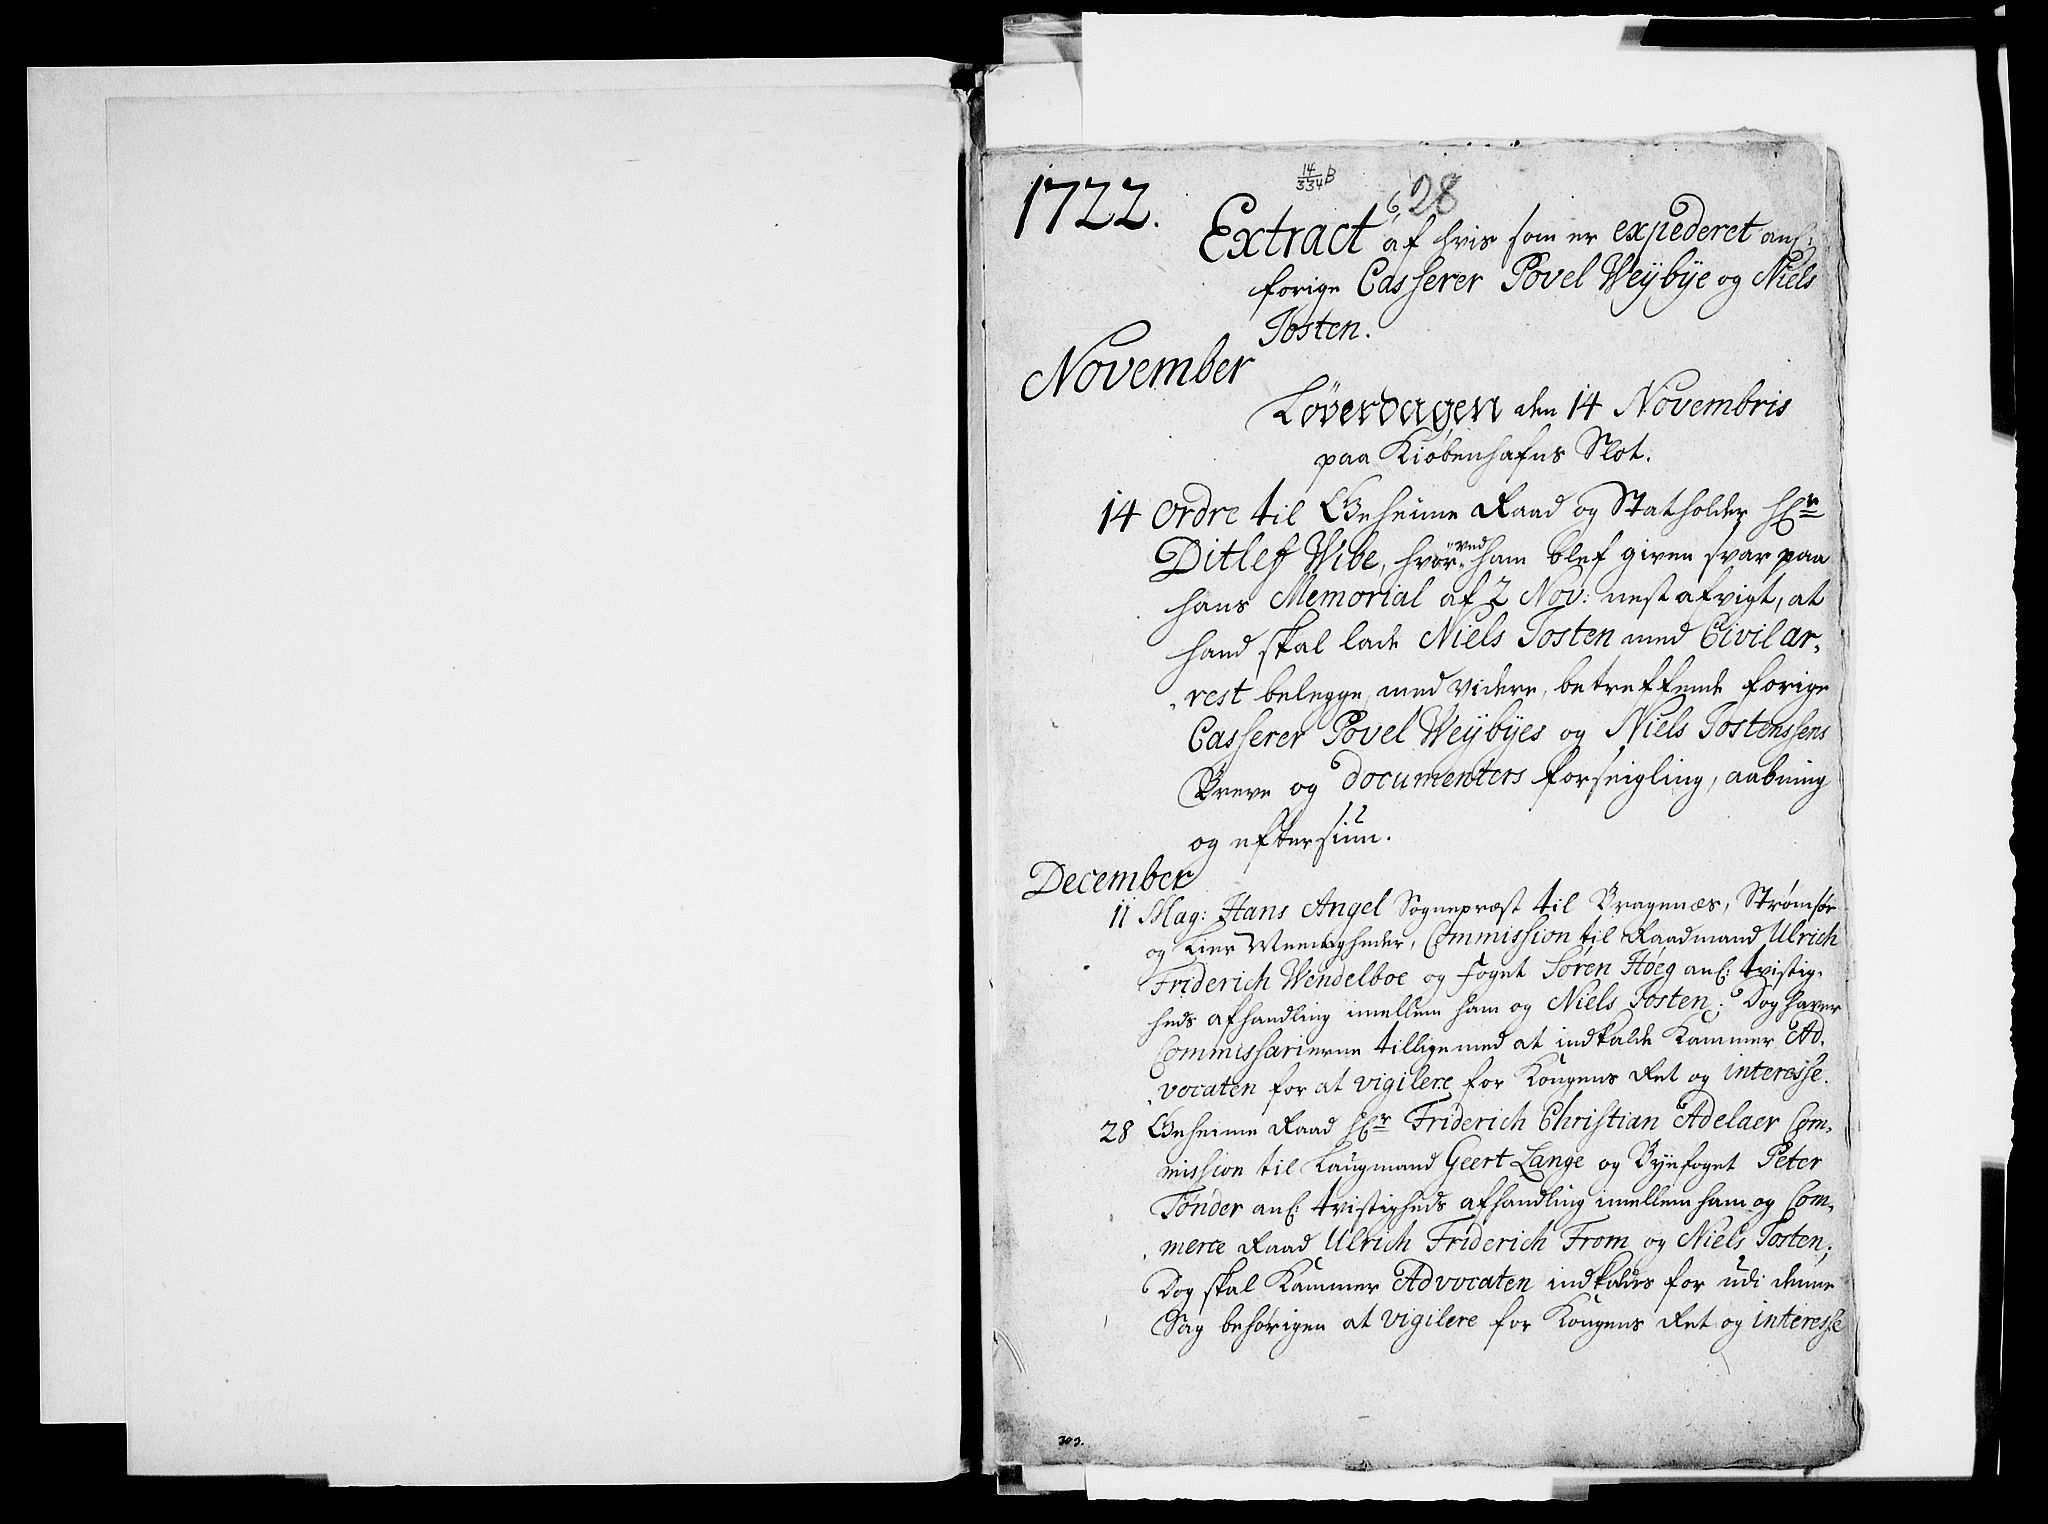 14/334 B
28
1722.
Extract af hvis som er expederet anl:
forige Casserer Povel Weÿbÿe og Niels
Tosten.
November
Løverdagen den 14 Novembris
paa Kiøbenhafns Slot.
14 Ordre til Geheime Raad og Statholder Hr
Ditlef Wibe, hvor ved ham blef given svar paa
hans Memorial af 2 Nov: nest afvigt, at
hand skal lade Niels Tosten med Civil ar-
rest belegge, med videre, betreffende forige
Casserer Povel Weÿbÿes og Niels Tostenssens
Breve og documenters forseigling, aabning
og eftersiun.
December
11 Mag: Hans Angel Sognepræst til Bragenæs, Strømsøe
og Lier Meenigheder, Commission til Raadmand Ulrich
Friderich Wendelboe og foget Søren Høeg anl: tvistig-
heds afhandling imellem ham og Niels Tosten; Dog haver
Commissarierne tilligemed at indkalde Kammer Ad-
vocaten for at vigilere for Kongens Ret og interesse.
28 Geheime Raad Hr Friderich Christian Adelaer Com-
mission til Laugmand Geert Lange og Byefoget Peter
Tønder anl: tvistigheds afhandling imellem ham og Com-
merce Raad Ulrich Friderich From og Niels Tosten;
Dog skal Kammer Advocaten indkaldes for udi denne
Sag behørigen at vigilere for Kongens Ret og interesse
303.